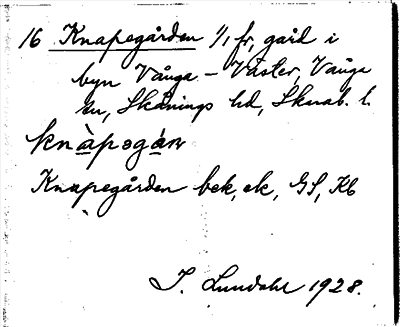 16 Knapegården 1/1, fr, gård i
byn Vånga - Väster, Vånga
sn, Skånings hd, Skarab. l.
knàpəgán
Knapegården bek, ek, GS, Kb
I. Lundahl 1928.